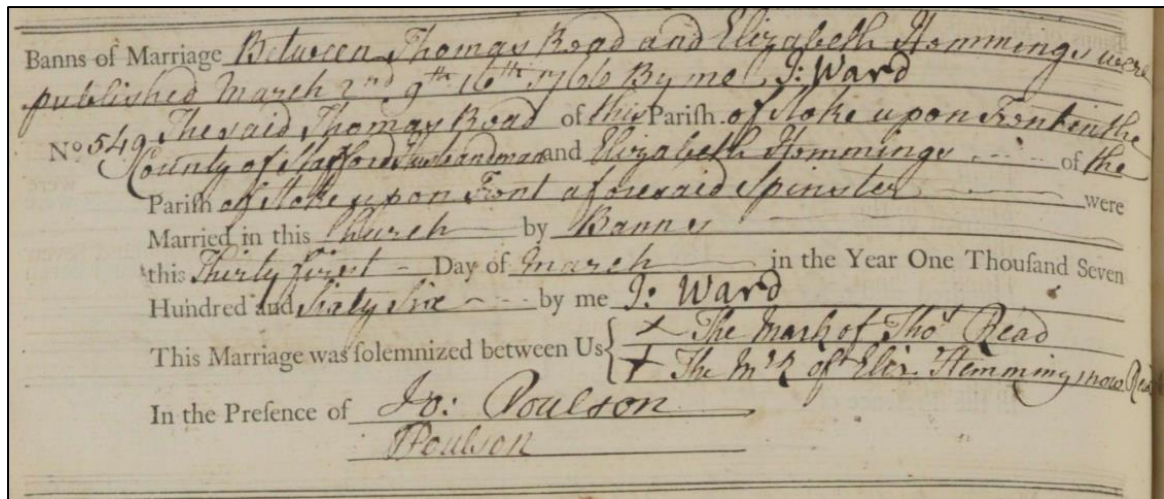 Banns of Marriage Between Thomas Read and Elizabeth Hemmings were
published March 2nd 9th 16th 1766 By me J: Ward
No 549 The said Thomas Read of this Parish of Stoke upon Trent in the
County of Stafford Husbandman and Elizabeth Hemmings of the
Parish of Stoke upon Trent aforesaid Spinster were
Married in this Church by Banns
this Thirty first Day of March in the Year One Thouſand Seven
Hundred and Sixty Six by me J: Ward
This Marriage was ſolemnized between Us { x The Mark of Thos Read
x The Mrk of Eliz Hemmings now Read
In the Preſence of Jo: Poulson
Poulson